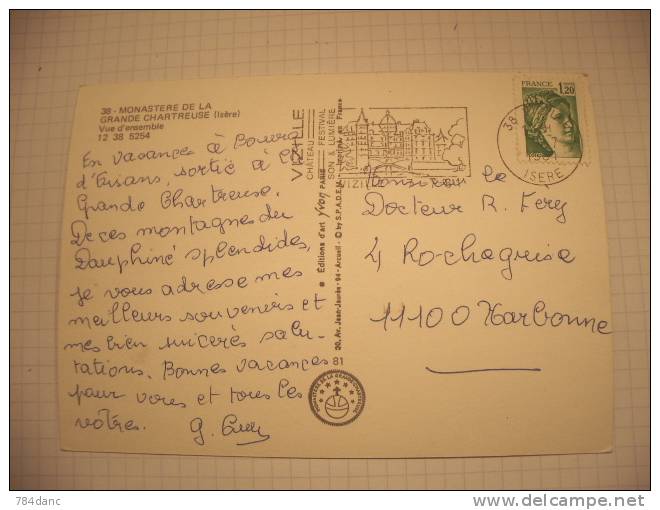 38 - MONASTERE DE LA
GRANDE CHARTREUSE (Isère)
Vue d'ensemble
12 38 5254
En vacances à Bourg
d'Oisans, sortie à la
Grande Chartreuse.
De ces montagnes du
Dauphiné splendides,
je vous adresse mes
meilleurs souvenirs et
mes bien sincères salu-
tations. Bonnes vacances
pour vous et tous les
vôtres.
G.
VIZILLE
CHÂTEAU - FESTIVAL
SON & LUMIÈRE
Éditions d'art Yvon PARIS
30, Av. Jean-Jaurès - 94 - Arcueil - © by S.P.A.D.E.M. - Imprimé en France
81
MONASTERE DE LA GRANDE CHARTREUSE
38
ISERE
FRANCE
1,20
Monsieur le
Docteur R. Fery
4 Rochegrise
11100 Narbonne
784danc
delcampe.net